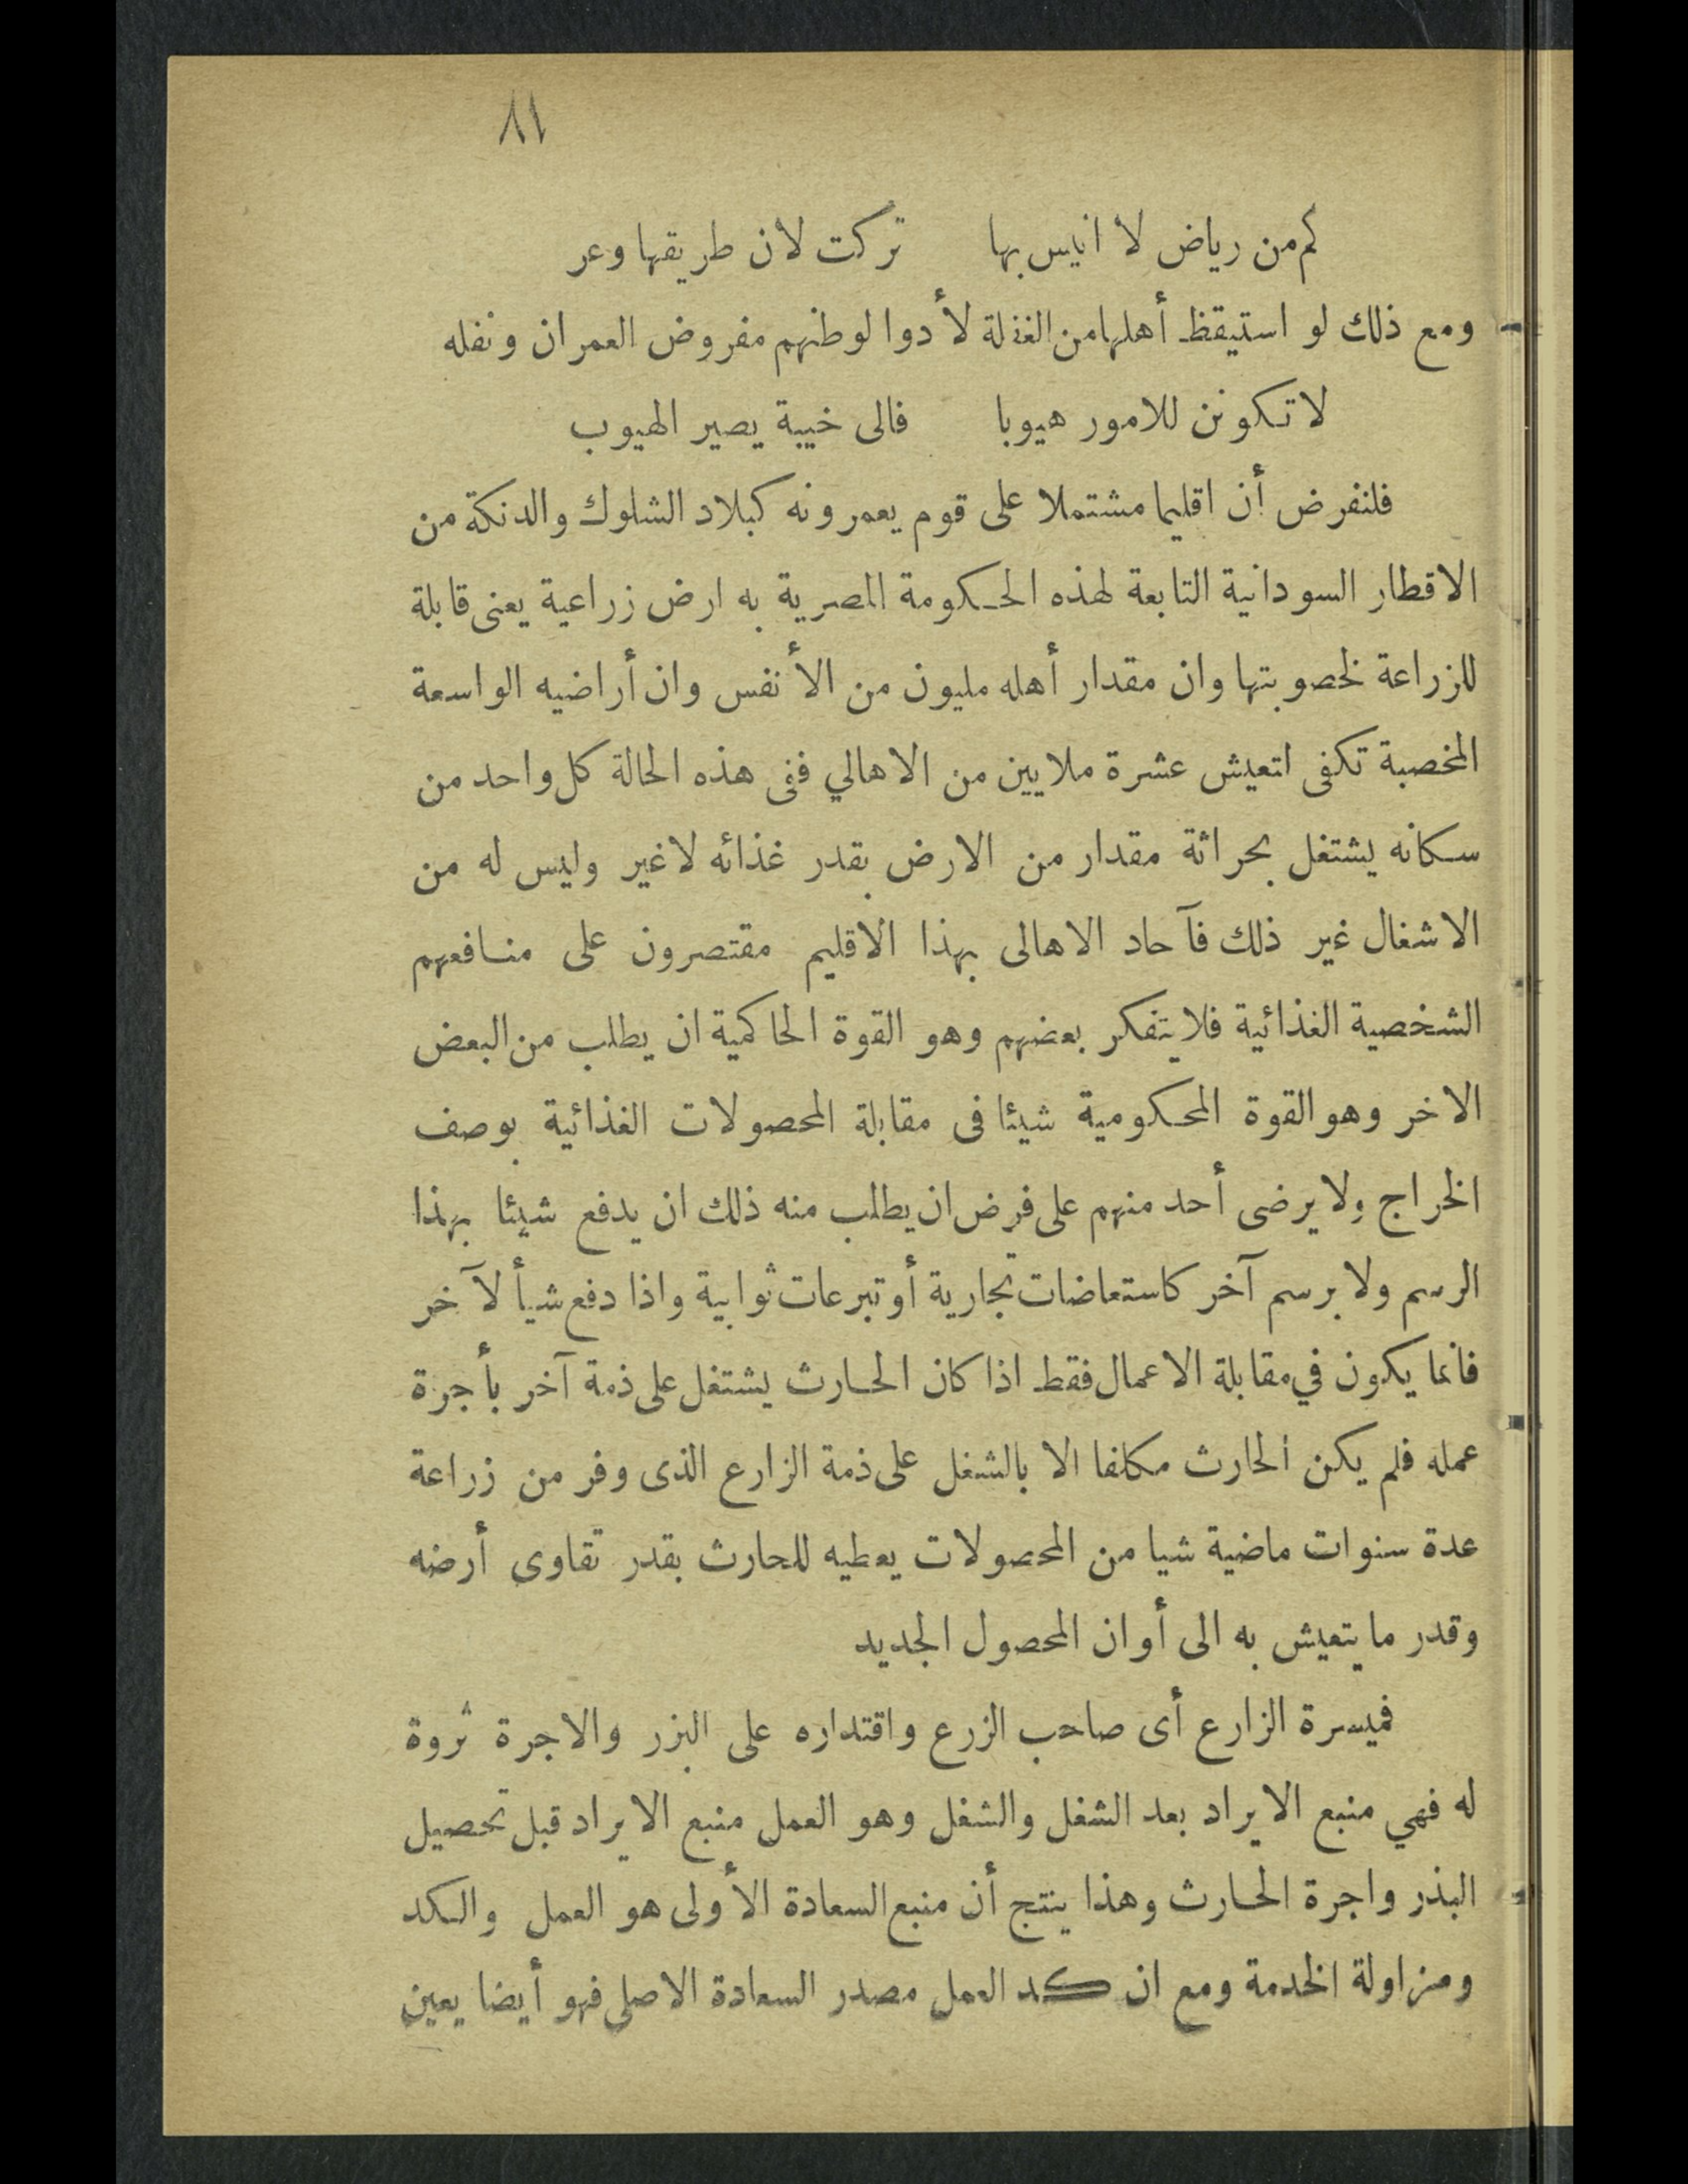 ٨١
كم من رياض لا انيس بها تركت لان طريقها وعر
ومع ذلك لو استيقظ أهلها من الغفلة لأدوا لوطنهم مفروض العمران ونفله
لا تكونن للامور هيوبا فالى خيبة يصير الهيوب
فلنفرض أن اقليما مشتملا على قوم يعمرونه كبلاد الشلوك والدنكة من
الاقطار السودانية التابعة لهذه الحكومة المصرية به ارض زراعية يعنى قابلة
للزراعة لخصوبتها وان مقدار أهله مليون من الأنفس وان أراضيه الواسعة
المخصبة تكفى اتعيش عشرة ملايين من الاهالي ففى هذه الحالة كل واحد من
سكانه يشتغل بحراثة مقدار من الارض بقدر غذائه لا غير وليس له من
الاشغال غير ذلك فآحاد الاهالى بهذا الاقليم مقتصرون على منافعهم
الشخصية الغذائية فلا يتفكر بعضهم وهو القوة الحاكمية ان يطلب من البعض
الاخر وهو القوة المحكومية شيئا فى مقابلة المحصولات الغذائية بوصف
الخراج ولا يرضى أحد منهم على فرض ان يطلب منه ذلك ان يدفع شيئا بهذا
الرسم ولا برسم آخر كاستعاضات تجارية أو تبرعات ثوابية واذا دفع شيأ لآخر
فانما يكون في مقابلة الاعمال فقط اذا كان الحارث يشتغل على ذمة آخر بأجرة
عمله فلم يكن الحارث مكلفا الا بالشغل على ذمة الزارع الذى وفر من زراعة
عدة سنوات ماضية شيا من المحصولات يعطيه للحارث بقدر تقاوى أرضه
وقدر ما يتعيش به الى أوان المحصول الجديد
فميسرة الزارع أى صاحب الزرع واقتداره على البزر والاجرة ثروة
له فهي منبع الايراد بعد الشغل والشغل وهو العمل منبع الايراد قبل تحصيل
البذر واجرة الحارث وهذا ينتج أن منبع السعادة الأولى هو العمل والكد
ومزاولة الخدمة ومع ان كد العمل مصدر السعادة الاصلى فهو أيضا يعين